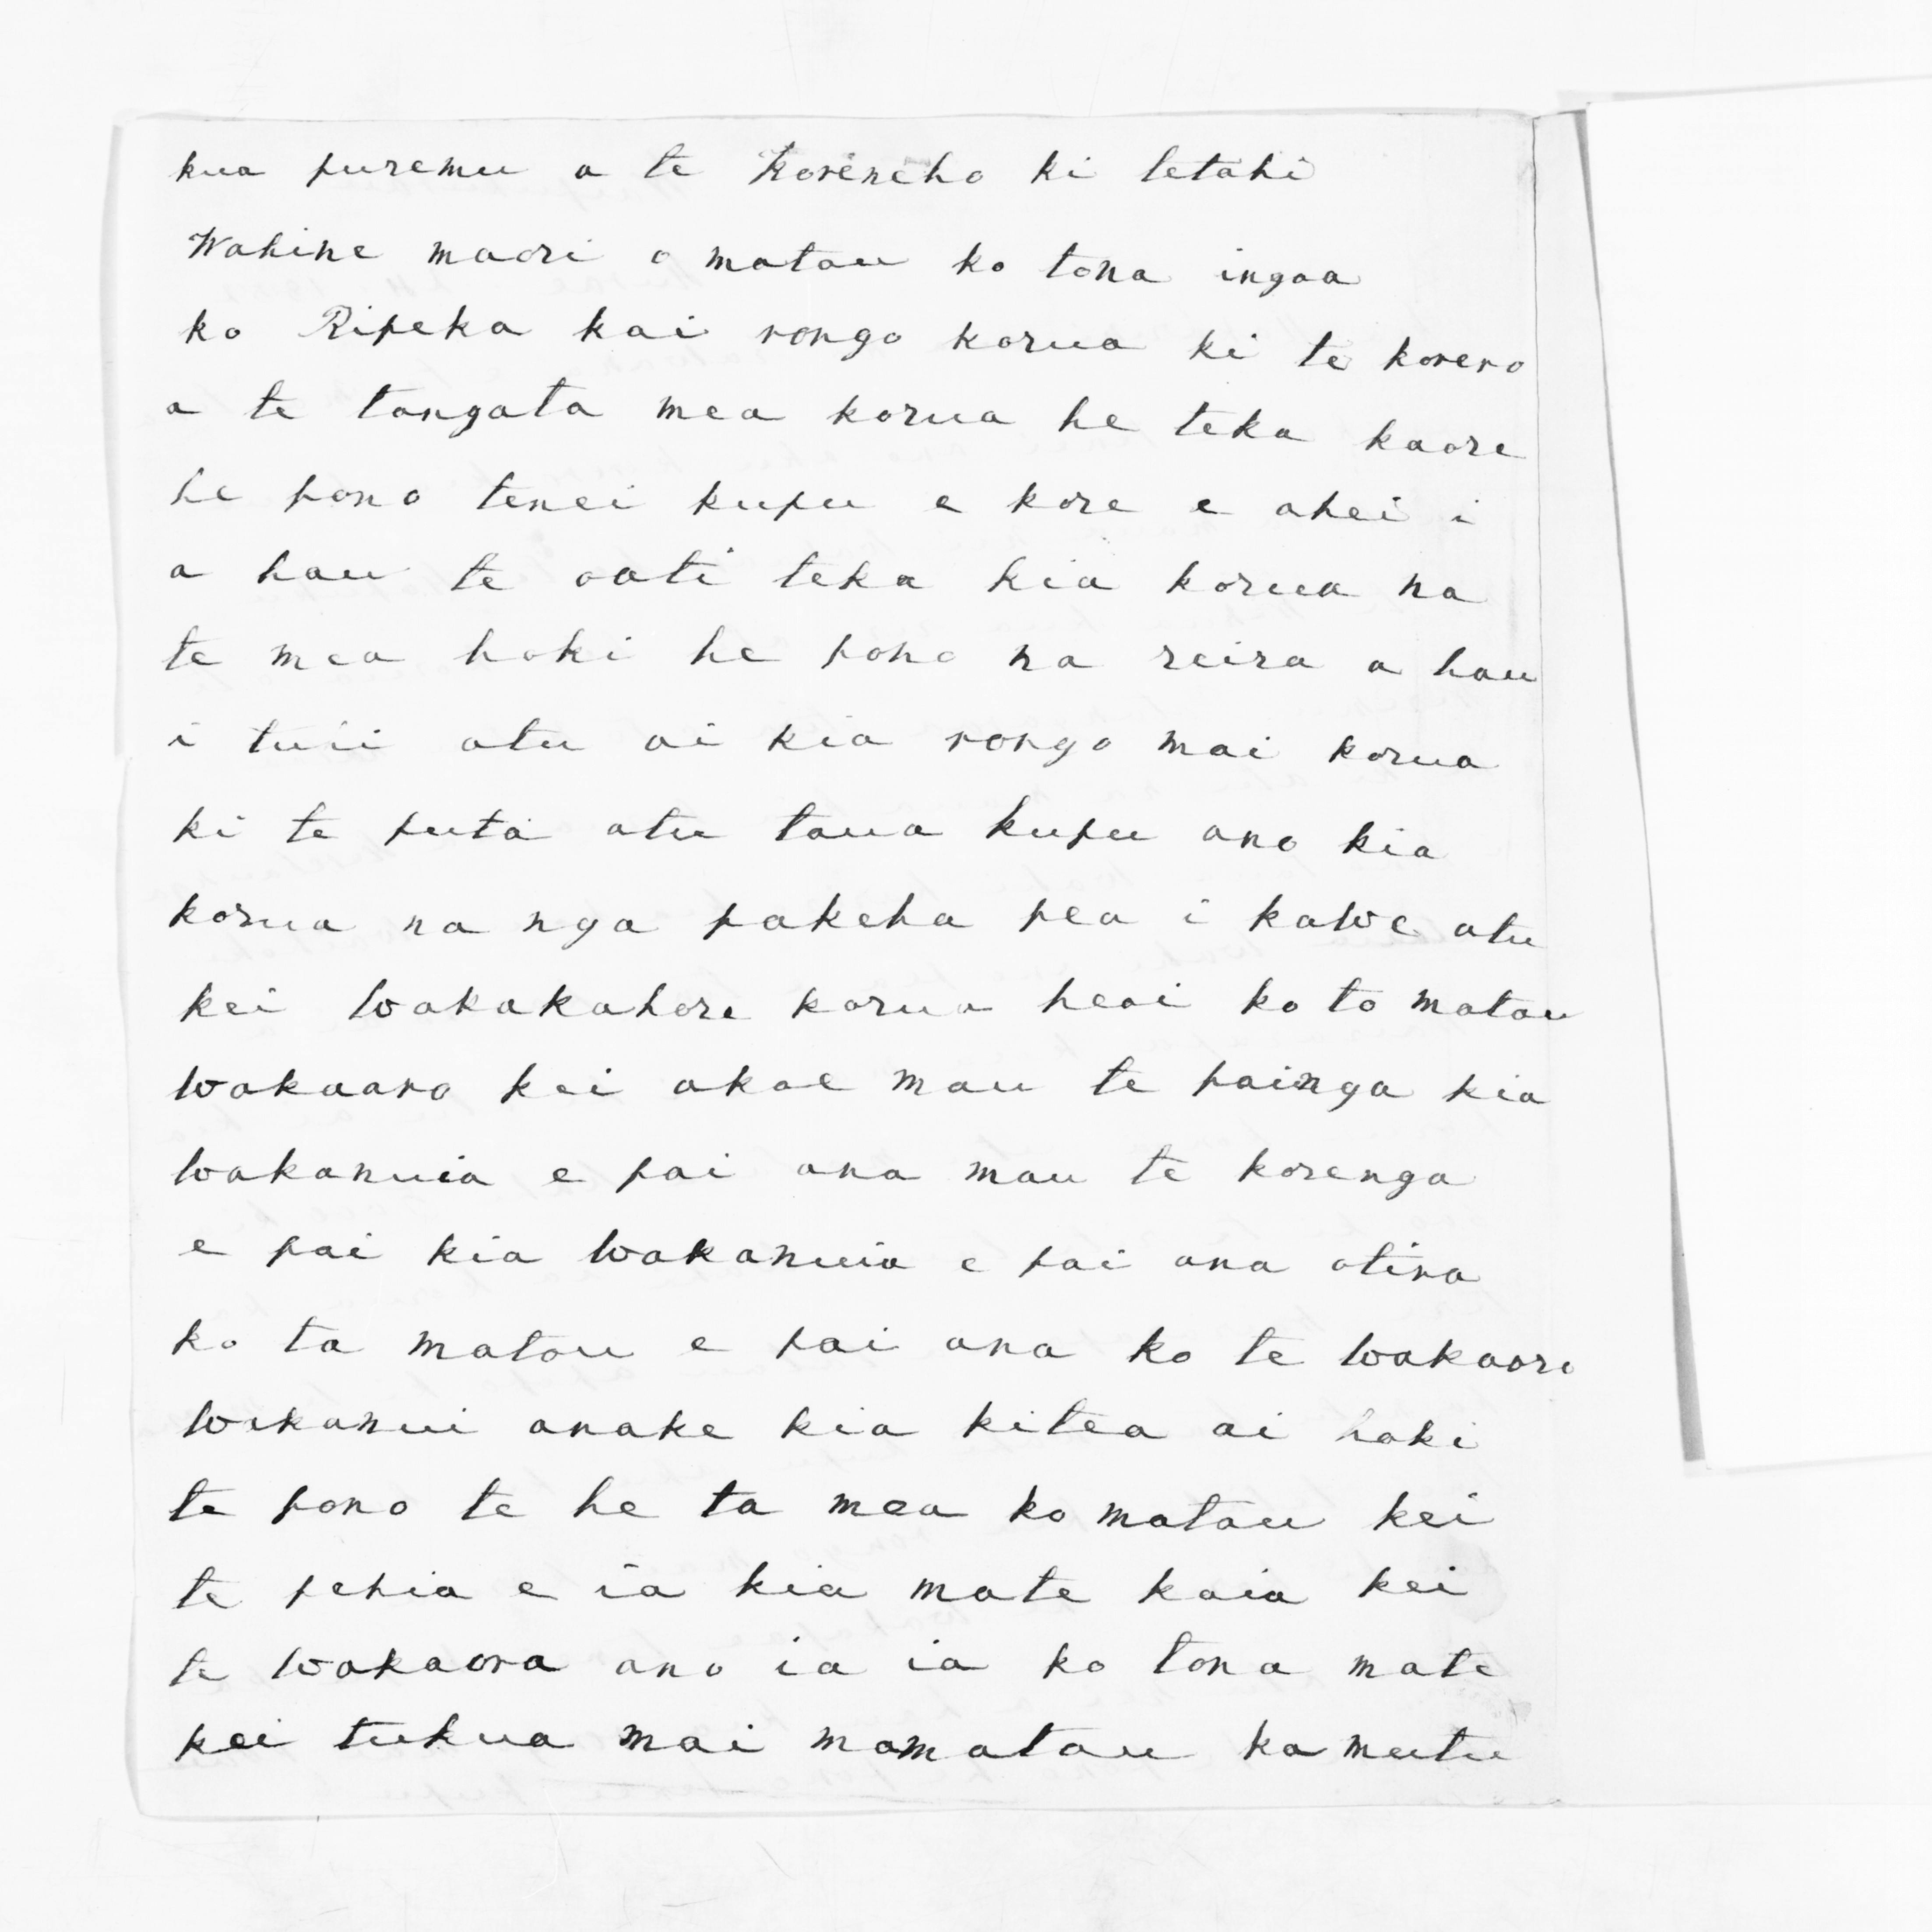 kua puremu a te Koreneho ki tetahi
Wahine maori o matau ko tona ingoa
ko Ripeka kai rongo korua ki te korero
a te tangata mea korua he teka kaore
he pono tenei kupu e kore e ahei i
a hau te oati teka kia korua na
te mea hoki he pono na reira a hau
i tuii atu ai kia rongo mai korua
ki te puta atu taua kupu ano kia
korua na nga pakeha pea i kawe atu
kei wakakahore korua heoi ko to matau
wakaaro kei akoe mau te painga kia
wakanuia e pai ana mau te korenga
e pai kia wakanuia e pai ana otira
ko ta matou e pai ana ko te wakaaro
wakanui anake kia kitea ai hoki
te pono te he ta mea ko matau kei
te pehia e ia kia mate kaia kei
te wakaora ano ia ia ko tona mate
kei tukua mai momatau ka mutu